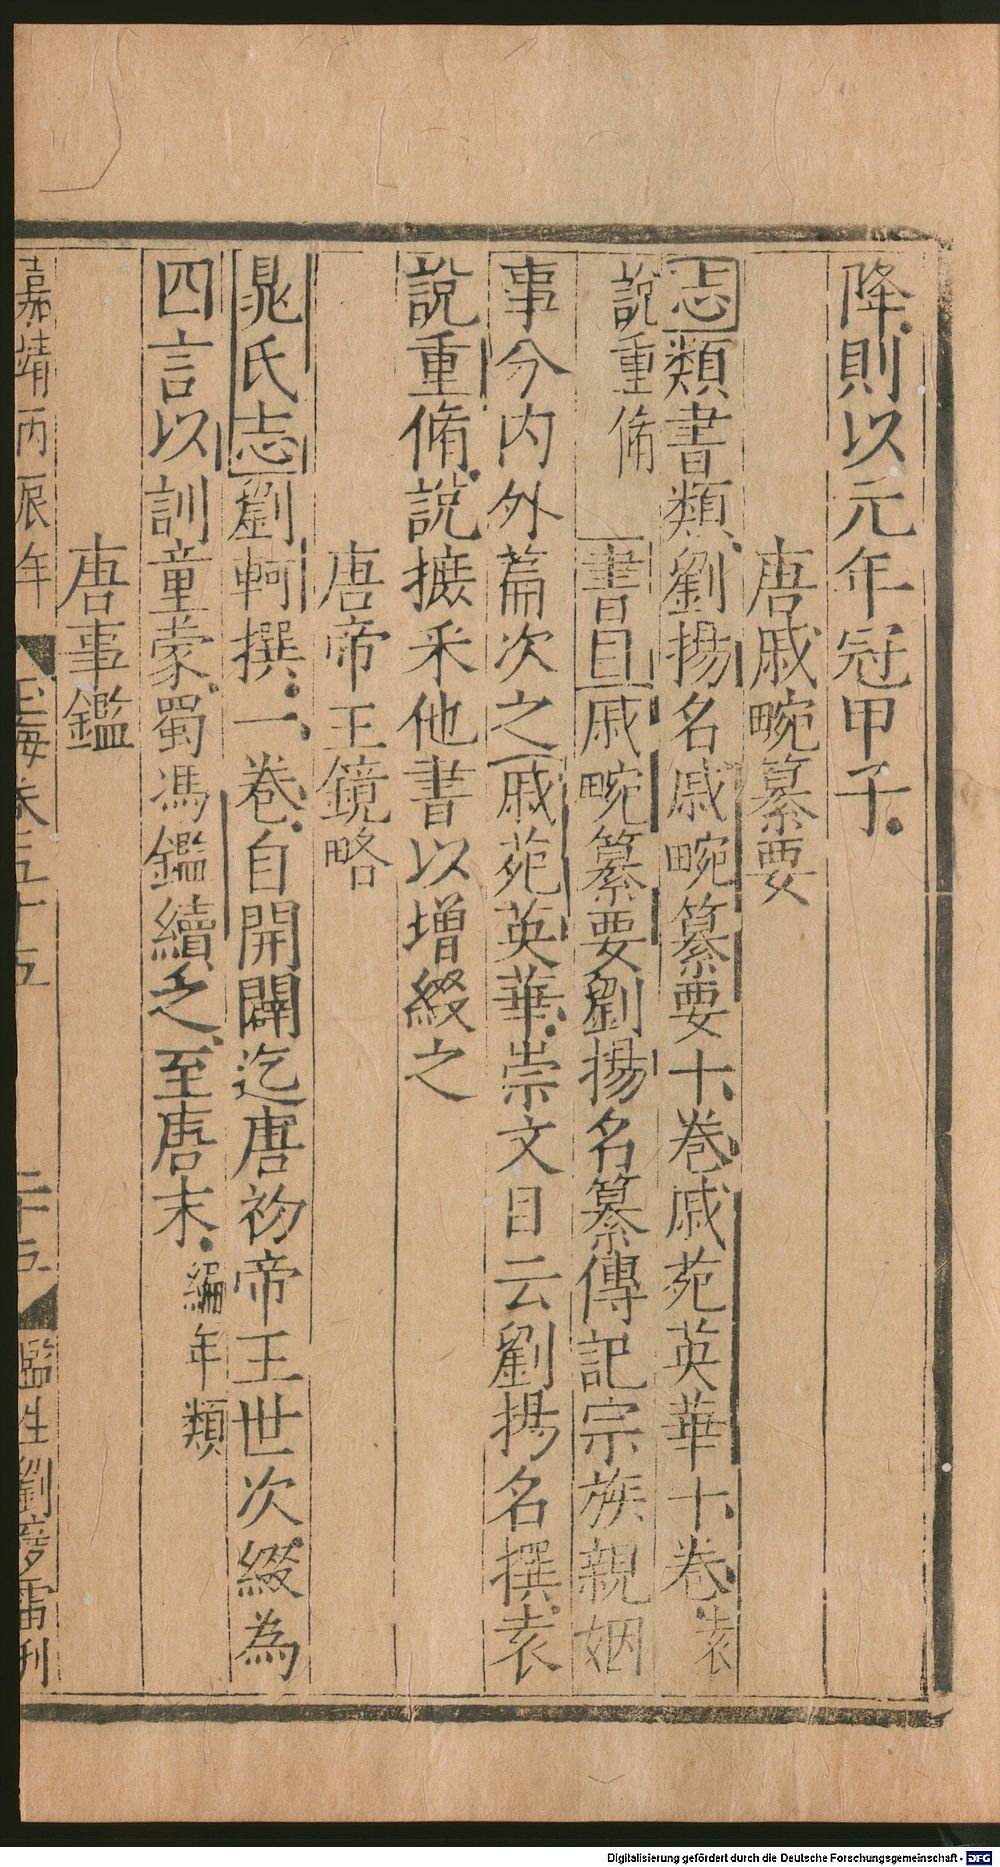 降則以元年冠甲子
唐戚畹纂要
志類書類劉揚名戚畹纂要十卷戚苑英華十卷袁
說重脩
書目戚畹纂要劉揚名纂傳記宗族親姻
事今內外篇次之戚苑英華崇文目云劉揚名撰袁
說重脩說摭采他書以增綴之
唐帝王鏡略
晁氏志劉軻撰一卷自開闢迄唐初帝王世次綴為
四言以訓童蒙蜀馮鑑續之至唐末編年類
唐事鑑
嘉靖丙辰年
玉海卷五十五
二十五
監生劉彥雷刊
Digitalisierung gefördert durch die Deutsche Forschungsgemeinschaft - DFG